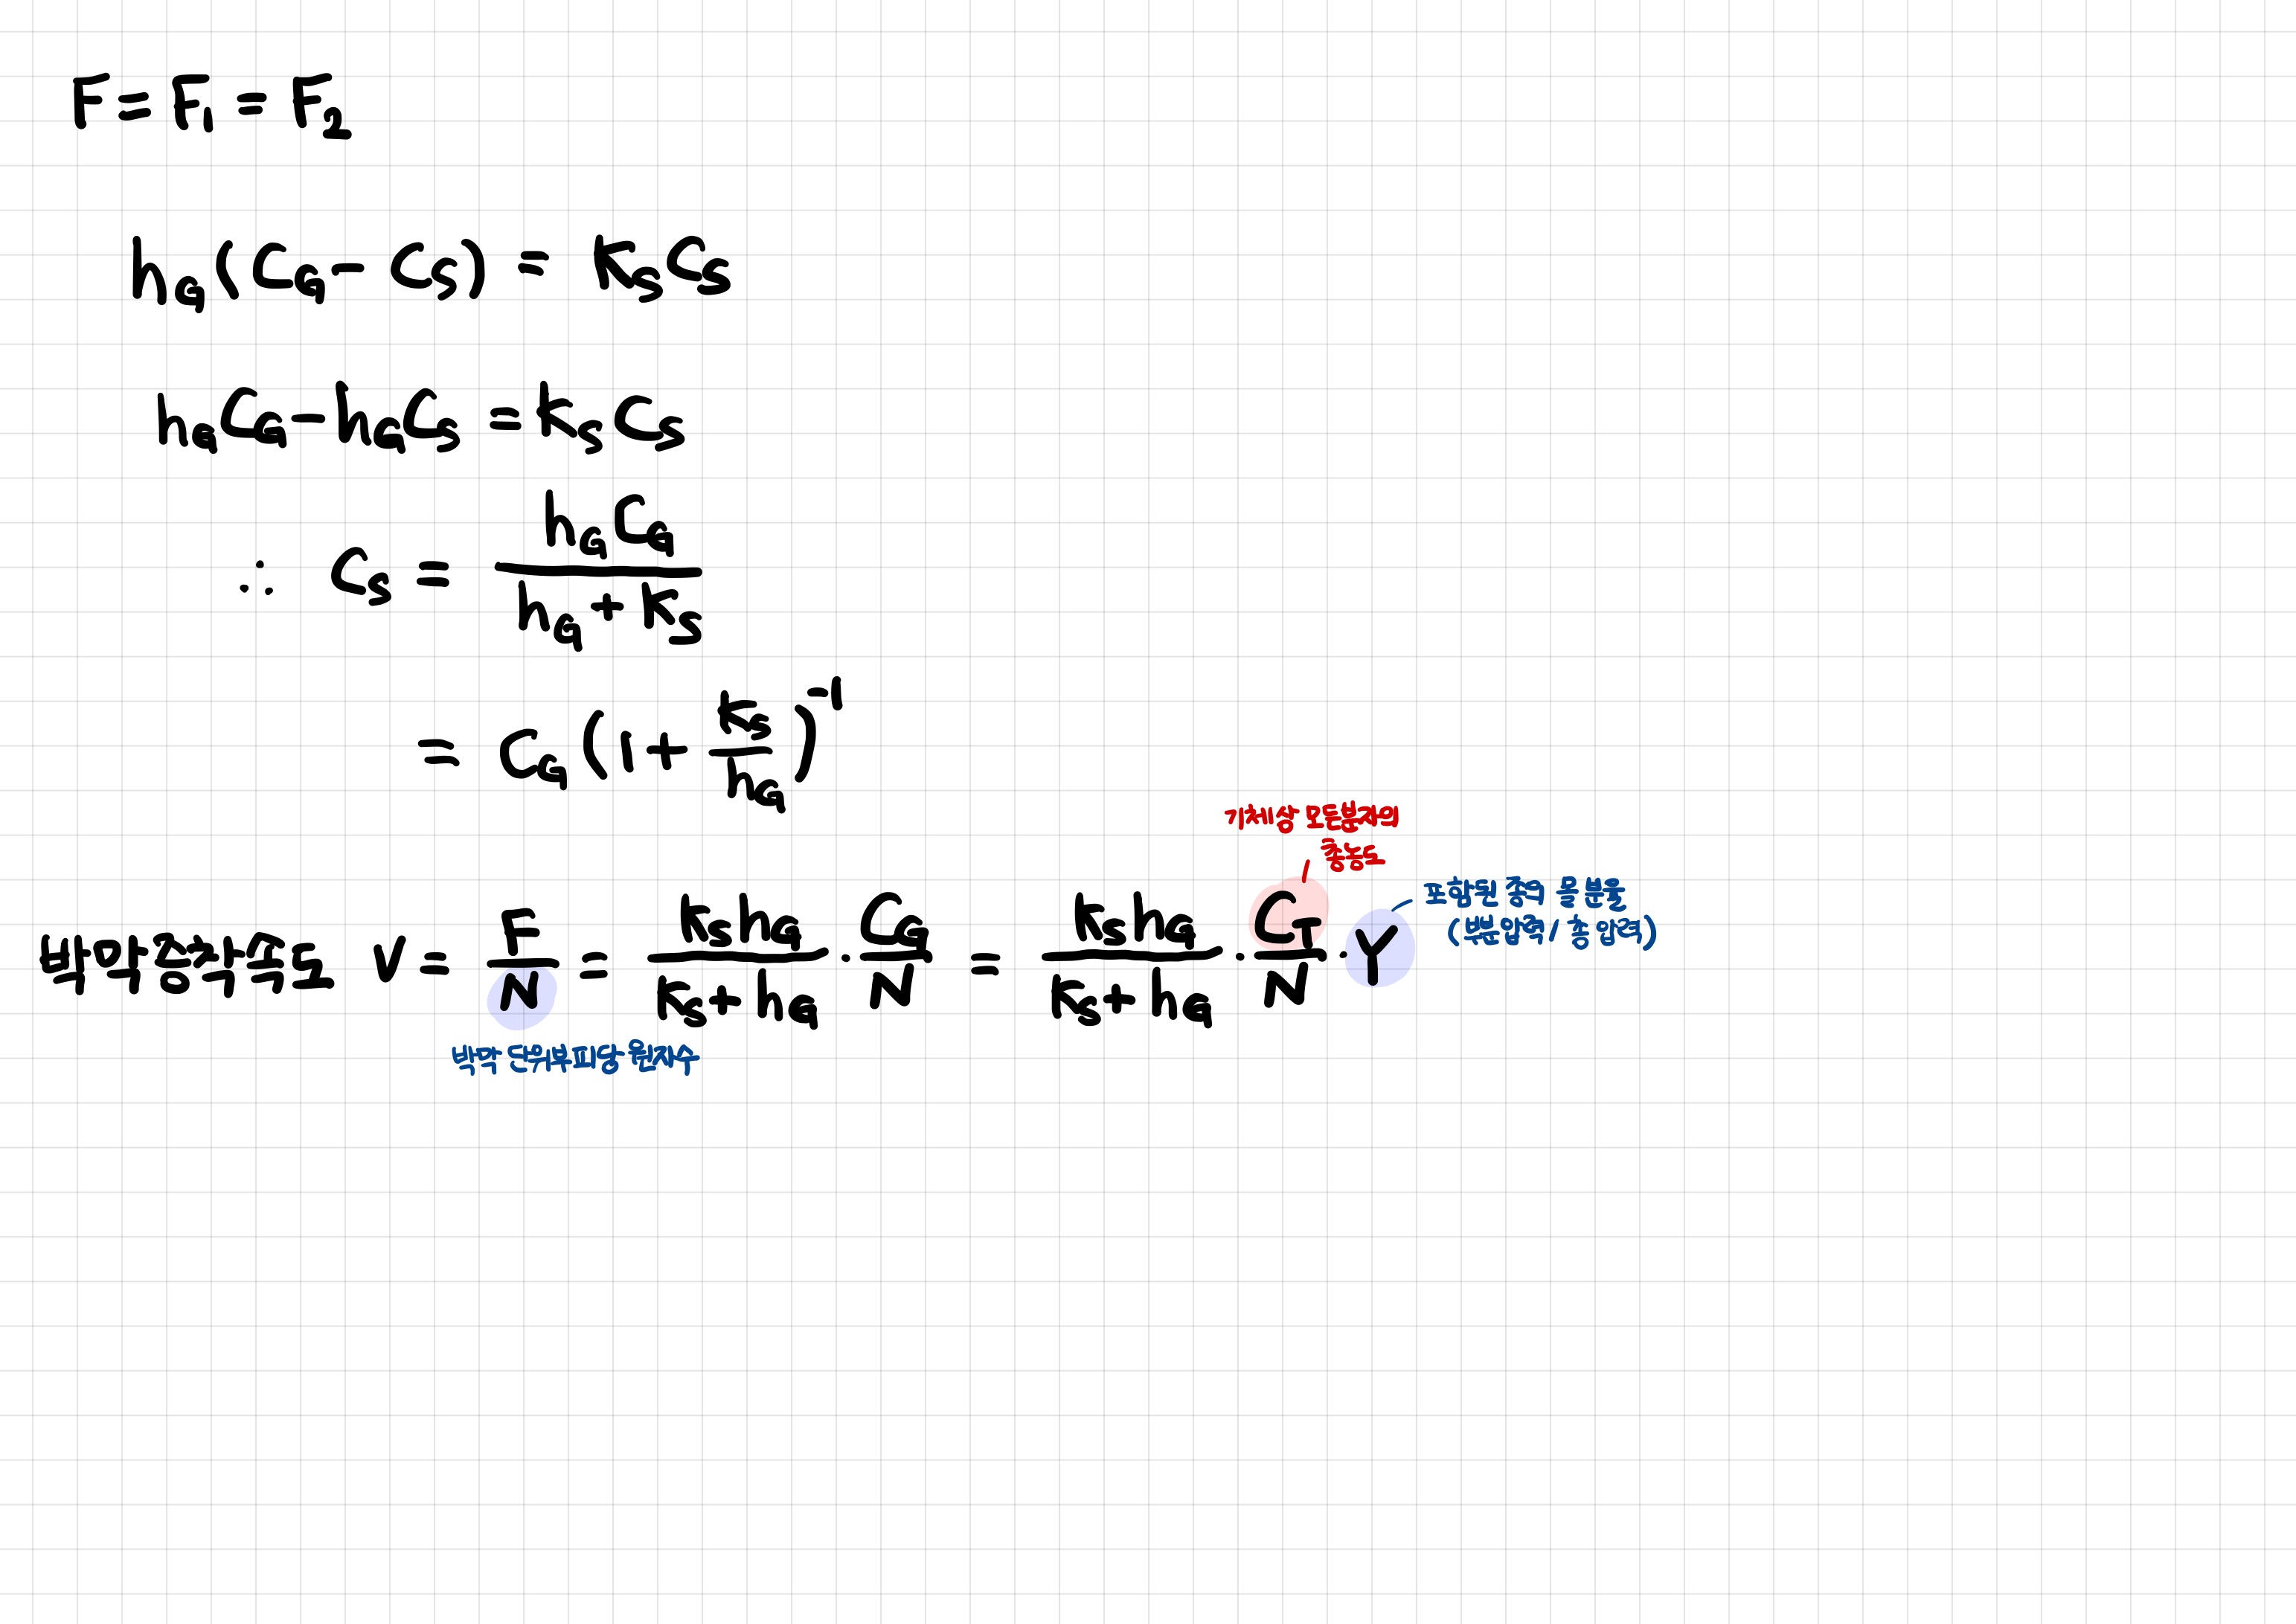 F = F₁ = F₂
h_G (C_G - C_S) = k_S C_S
h_G C_G - h_G C_S = k_S C_S
∴ C_S = h_G C_G / (h_G + k_S)
= C_G (1 + k_S / h_G)⁻¹
기체상 모든분자의
총농도
포함된 종의 몰 분율
(부분압력 / 총 압력)
박막증착속도 V = F / N = k_S h_G / (k_S + h_G) · C_G / N = k_S h_G / (k_S + h_G) · C_T / N · Y
박막 단위부피당 원자수